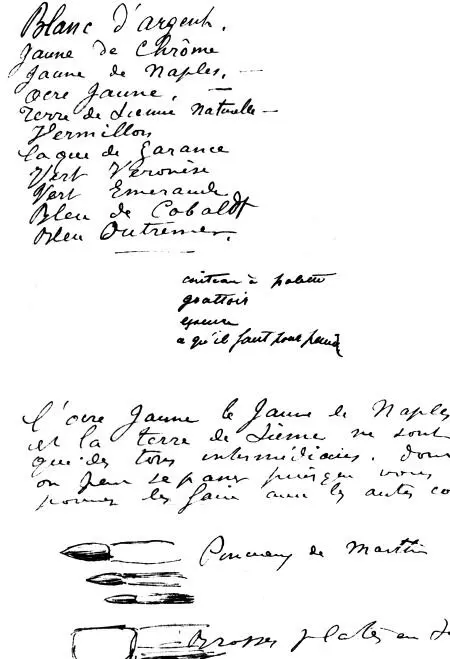 Blanc d'argent.
Jaune de Chrôme
Jaune de Naples. —
Ocre Jaune. —
Terre de Sienne Naturelle —
Vermillon
laque de Garance
Vert Véronèse
Vert Emeraude
Bleu de Cobaldt
Bleu Outremer.
couteau à palette
grattoir
essence
a qu'il faut pour peindre
l'ocre Jaune le Jaune de Naples
et la terre de Sienne ne sont
que des tons intermédiaires. dont
on peu se passer puisque vous
pouvez les faire avec les autres co
Pinceaux de Marthe
Brosses plates en